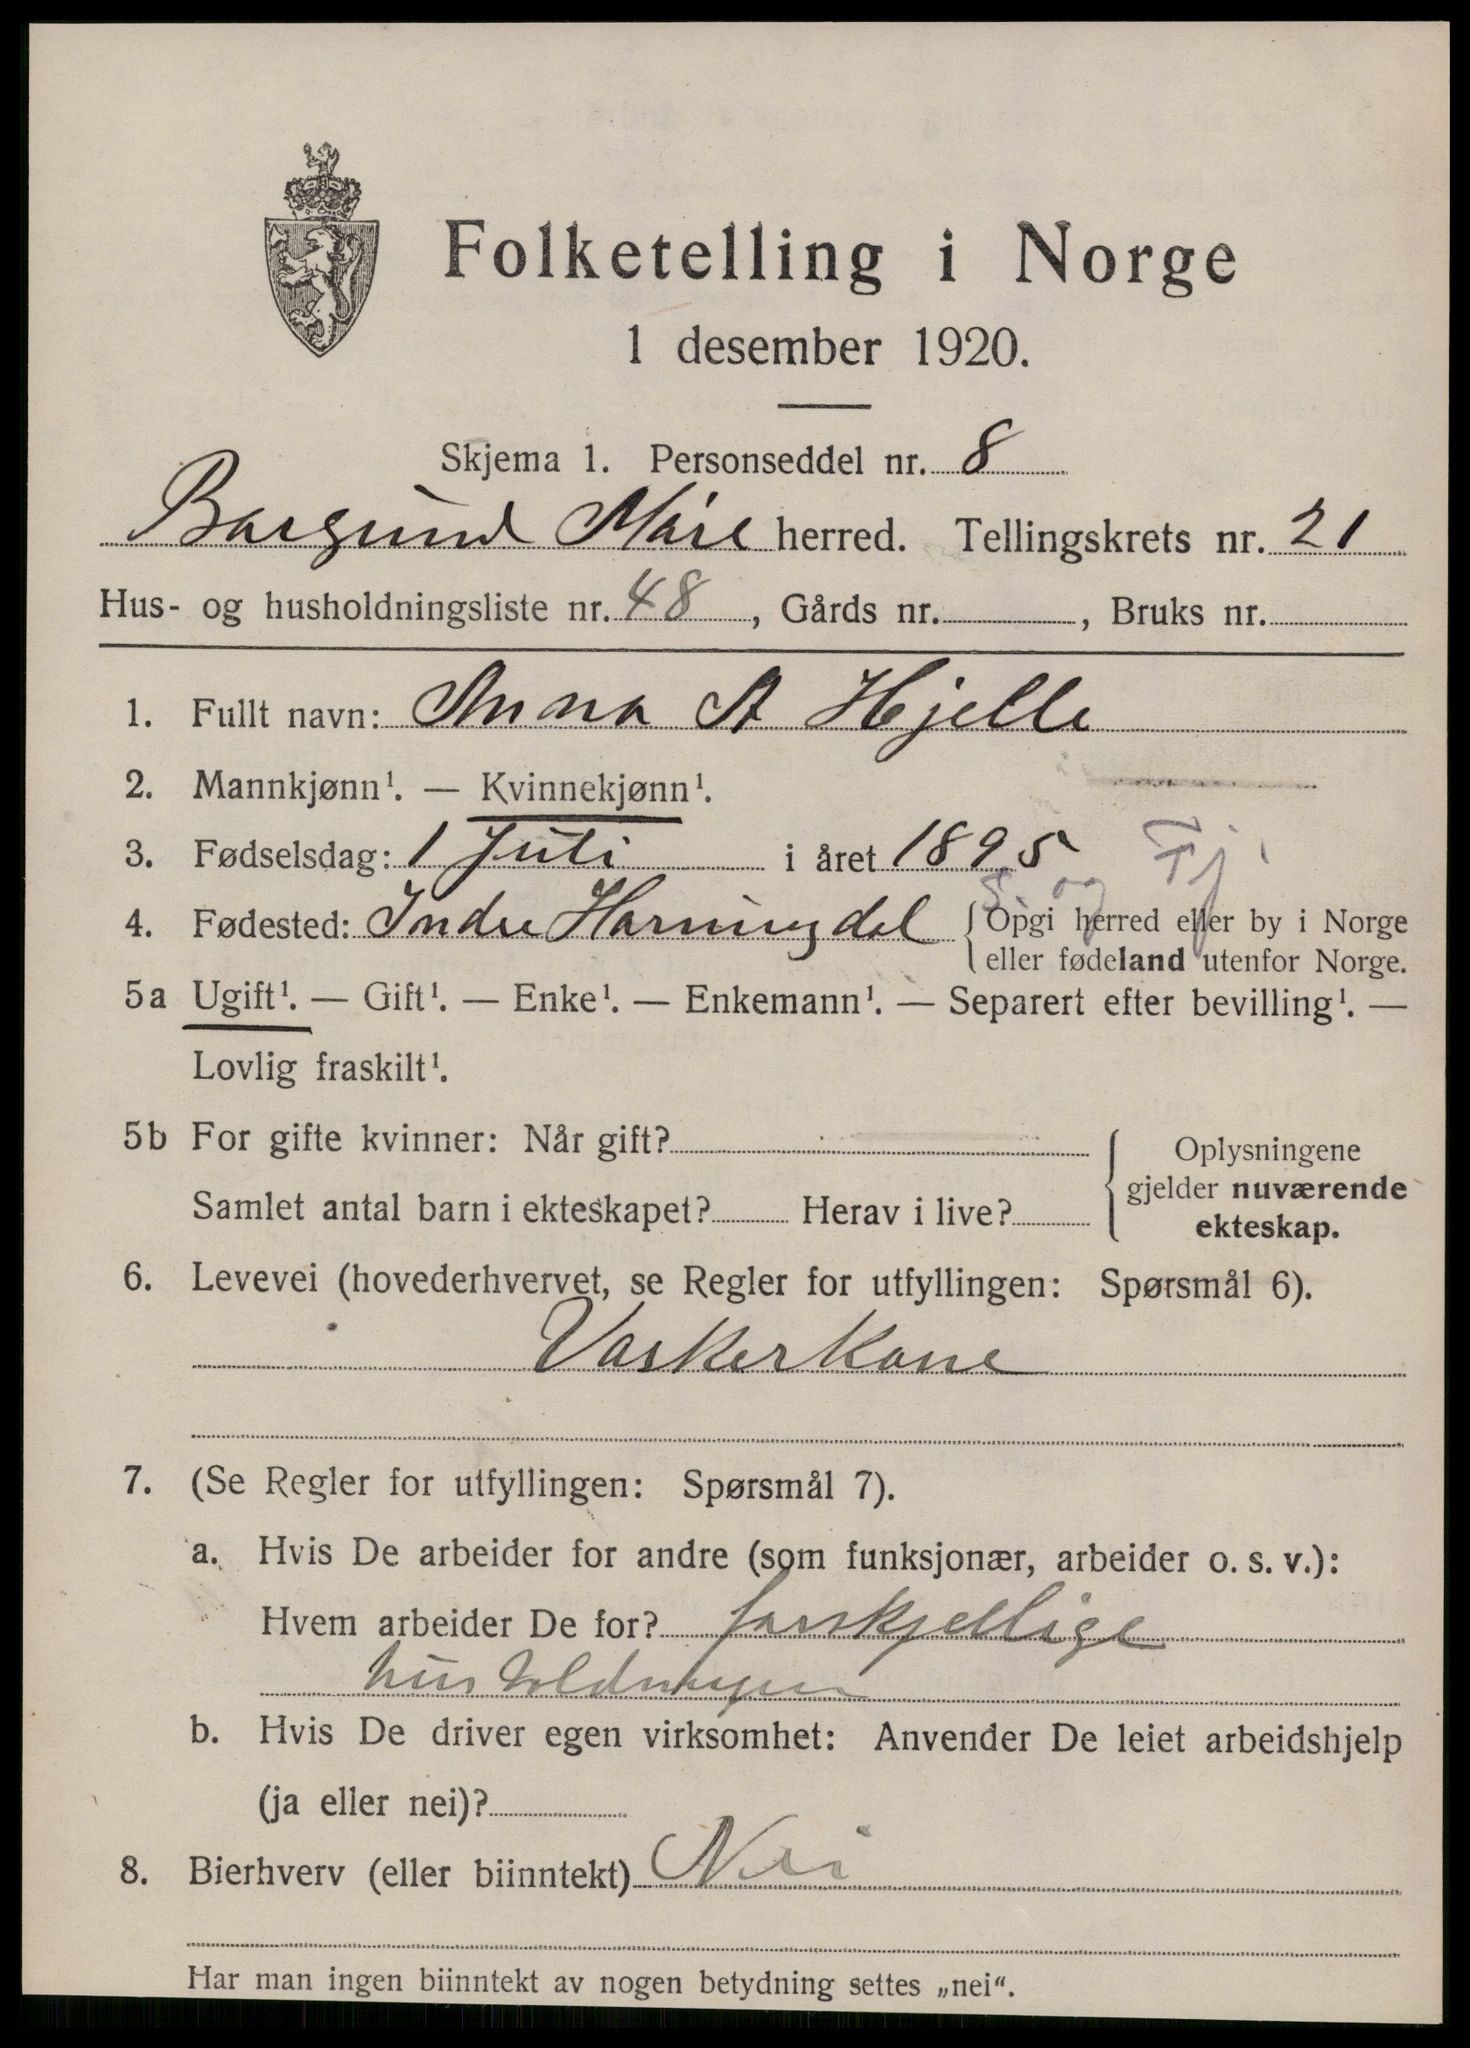 Folketelling i Norge
1 desember 1920.
Skjema 1. Personseddel nr. 8
Borgund Møre herred. Tellingskrets nr. 21
Hus- og husholdningsliste nr. 48, Gårds nr. , Bruks nr.
1. Fullt navn: Anna A Hjelle
2. Mannkjønn¹. — Kvinnekjønn¹.
3. Fødselsdag: 1 Juli i året 1895
S. og Fj.
4. Fødested: Indre Horningdal { Opgi herred eller by i Norge
eller fødeland utenfor Norge.
5a Ugift¹. — Gift¹. — Enke¹. — Enkemann¹. — Separert efter bevilling¹. —
Lovlig fraskilt¹.
5b For gifte kvinner: Når gift? { Oplysningene
gjelder nuværende
ekteskap.
Samlet antal barn i ekteskapet? Herav i live?
6. Levevei (hovederhvervet, se Regler for utfyllingen: Spørsmål 6).
Vaskerkone
7. (Se Regler for utfyllingen: Spørsmål 7).
a. Hvis De arbeider for andre (som funksjonær, arbeider o. s. v.):
Hvem arbeider De for? forskjellige
husholdninger
b. Hvis De driver egen virksomhet: Anvender De leiet arbeidshjelp
(ja eller nei)?
8. Bierhverv (eller biinntekt) Nei
Har man ingen biinntekt av nogen betydning settes „nei“.